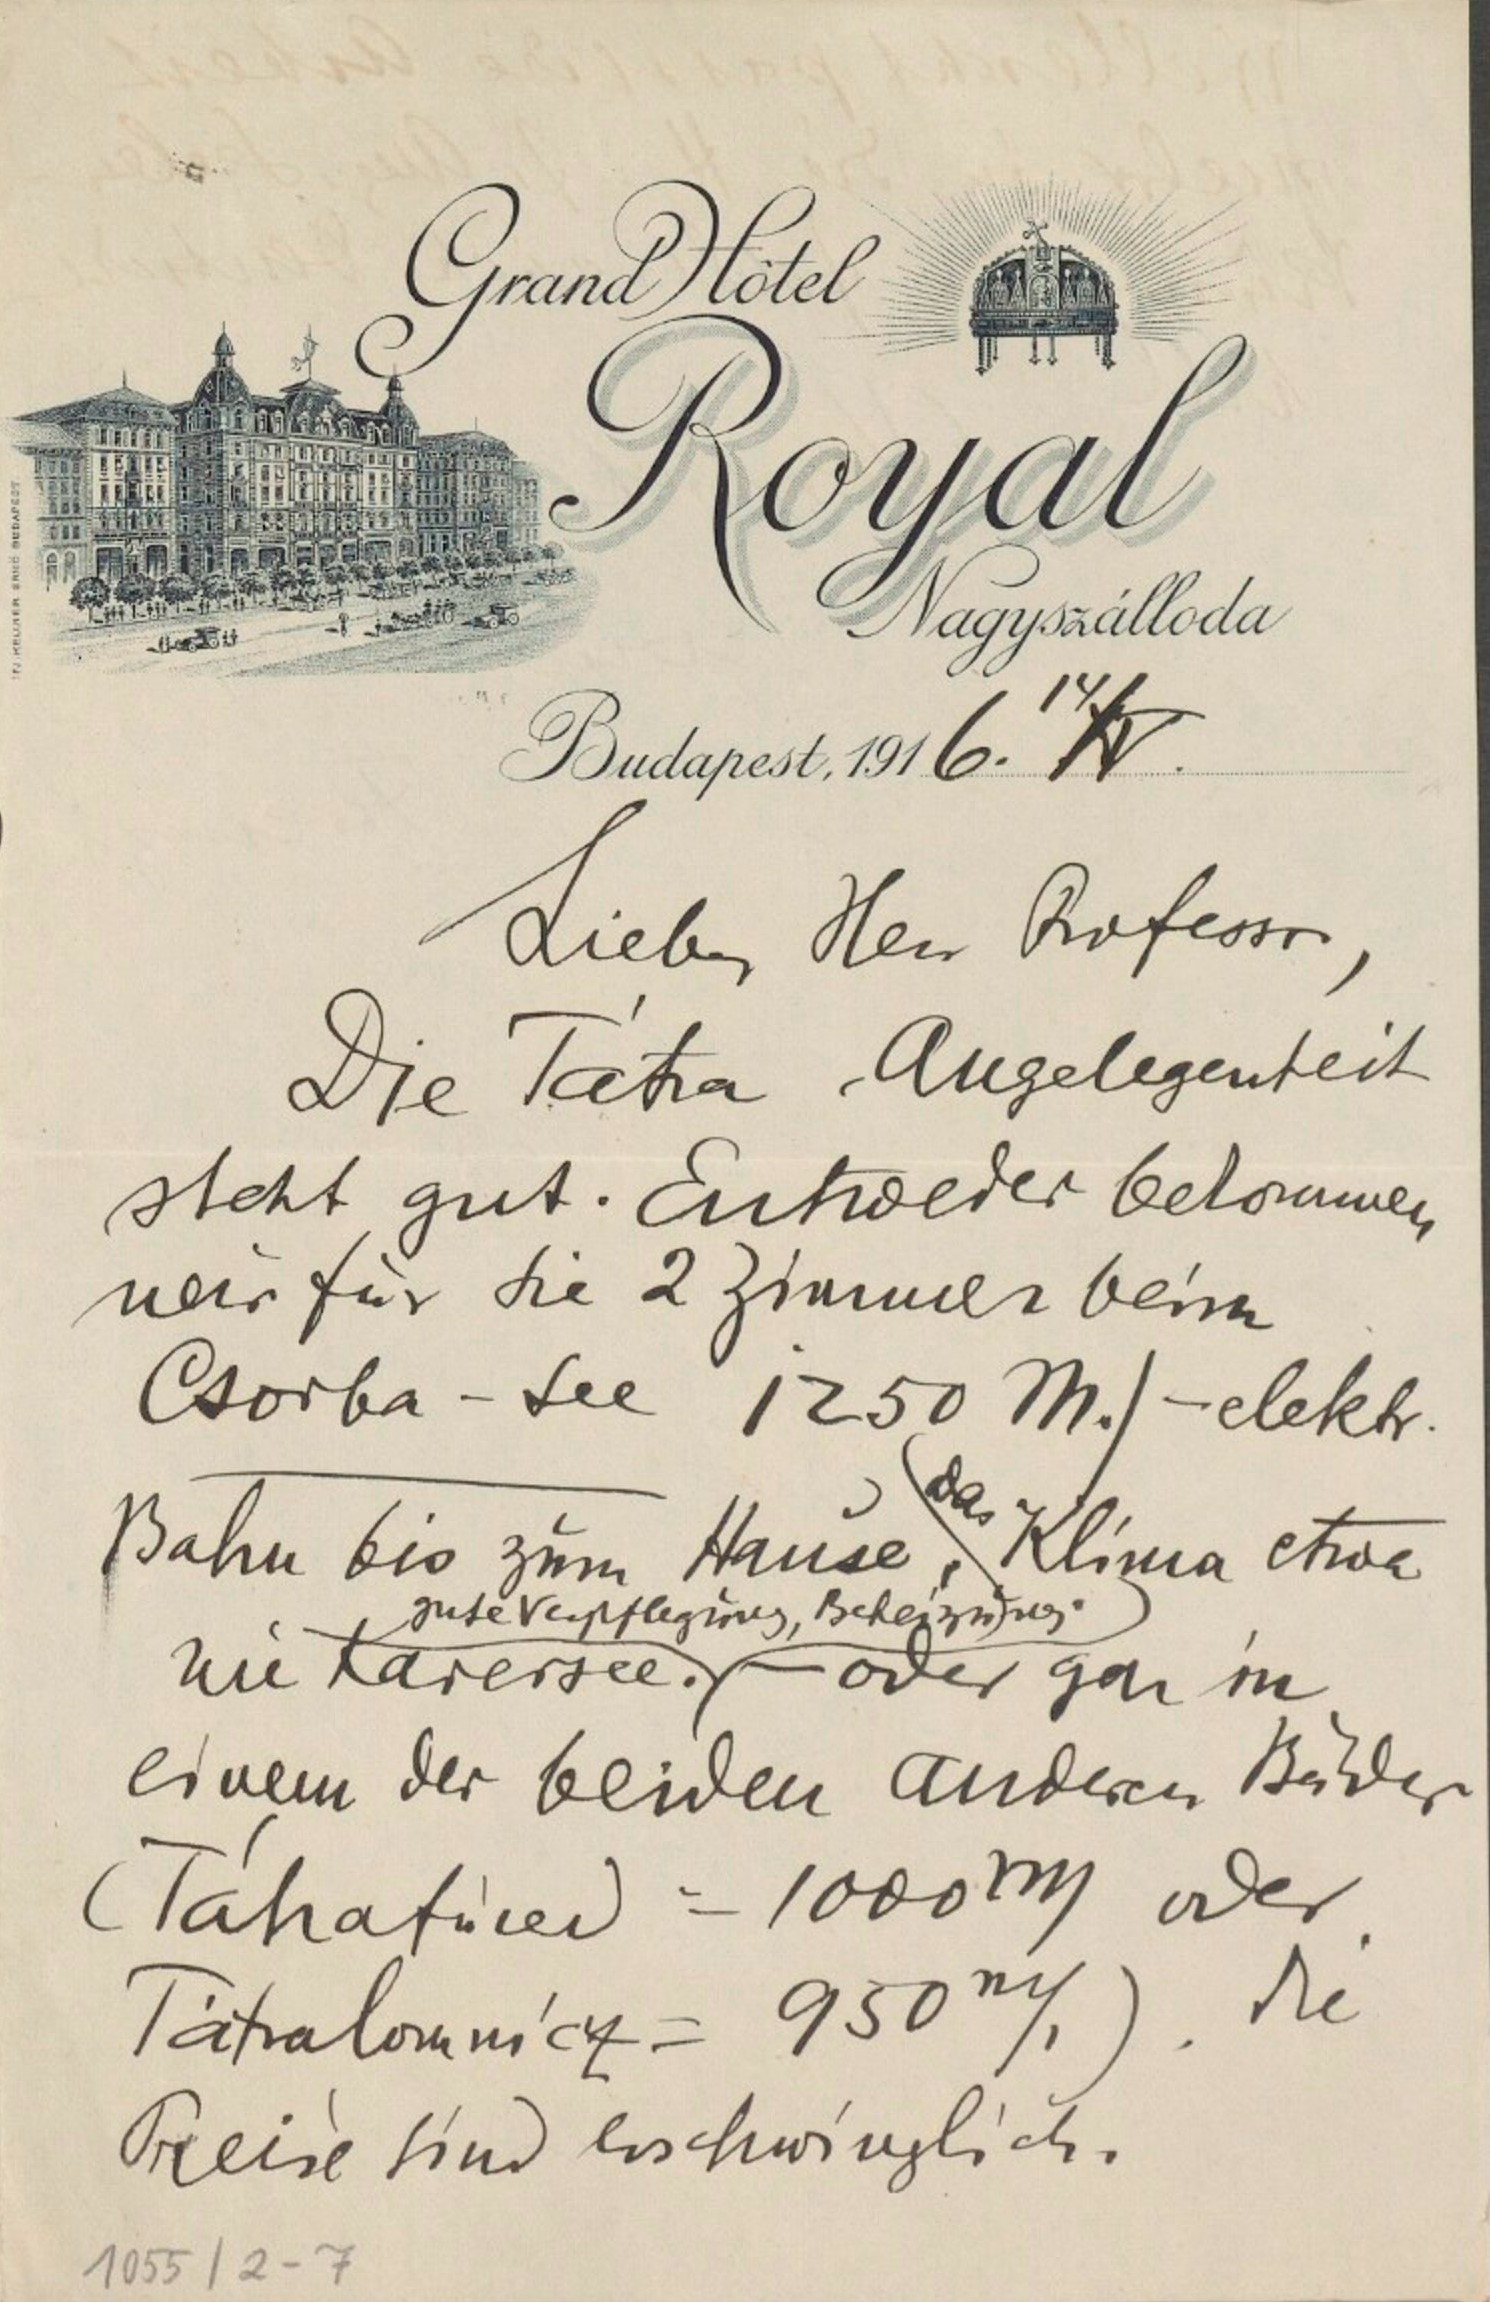 Grand Hôtel
Royal
Nagyszálloda
Budapest, 1916. 14/IV.
Lieber Herr Professor,
Die Tátra Angelegenheit
steht gut. Entweder bekommen
wir für Sie 2 Zimmer beim
Csorba-See 1250 M.) - elektr.
Bahn bis zum Hause, (das Klima etwa
gute Verpflegung, Beheizung.
wie Karersee.) - oder gar in
einem der beiden anderen Bäder
(Tátrafüred = 1000 m/ oder
Tátralomnicz = 950 m/.). Die
Preise sind erschwinglich.
1055/2-7